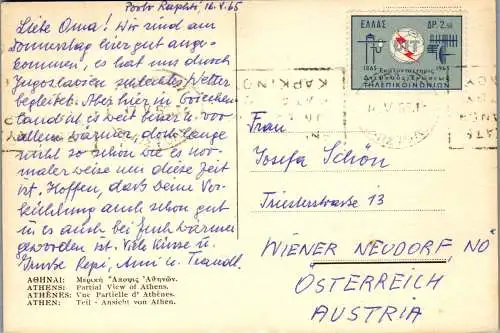 Porto Raphti 12.V.65
Liebe Oma! Wir sind am
Donnerstag hier gut ange-
kommen, es hat uns durch
Jugoslavien schlechtes Wetter
begleitet. Aber hier in Griechen-
land ist es weit besser u. vor
allem wärmer, doch lange
nicht so schön wie es nor-
maler weise um diese Zeit
ist. Hoffen, daß deine Ver-
kühlung auch schon gut
u. es auch bei Euch wärmer
geworden ist. Viele Küsse u.
Grüße Repi, Ami u. Traudl.
ΑΘΗΝΑΙ: Μερική Ἄποψις Ἀθηνῶν.
ATHENS: Partial View of Athens.
ATHÈNES: Vue Partielle d'Athènes.
ATHEN: Teil - Ansicht von Athen.
ΕΛΛΑΣ ΔΡ. 2.50
1865 1965
UIT
Ἑκατονταετηρίς
Διεθνοῦς Ἑνώσεως
ΤΗΛΕΠΙΚΟΙΝΩΝΙΩΝ
ΚΑΡΚΙΝΟ
Frau
Josefa Schön
Triesterstrasse 13
WIENER NEUDORF, NÖ
ÖSTERREICH
AUSTRIA